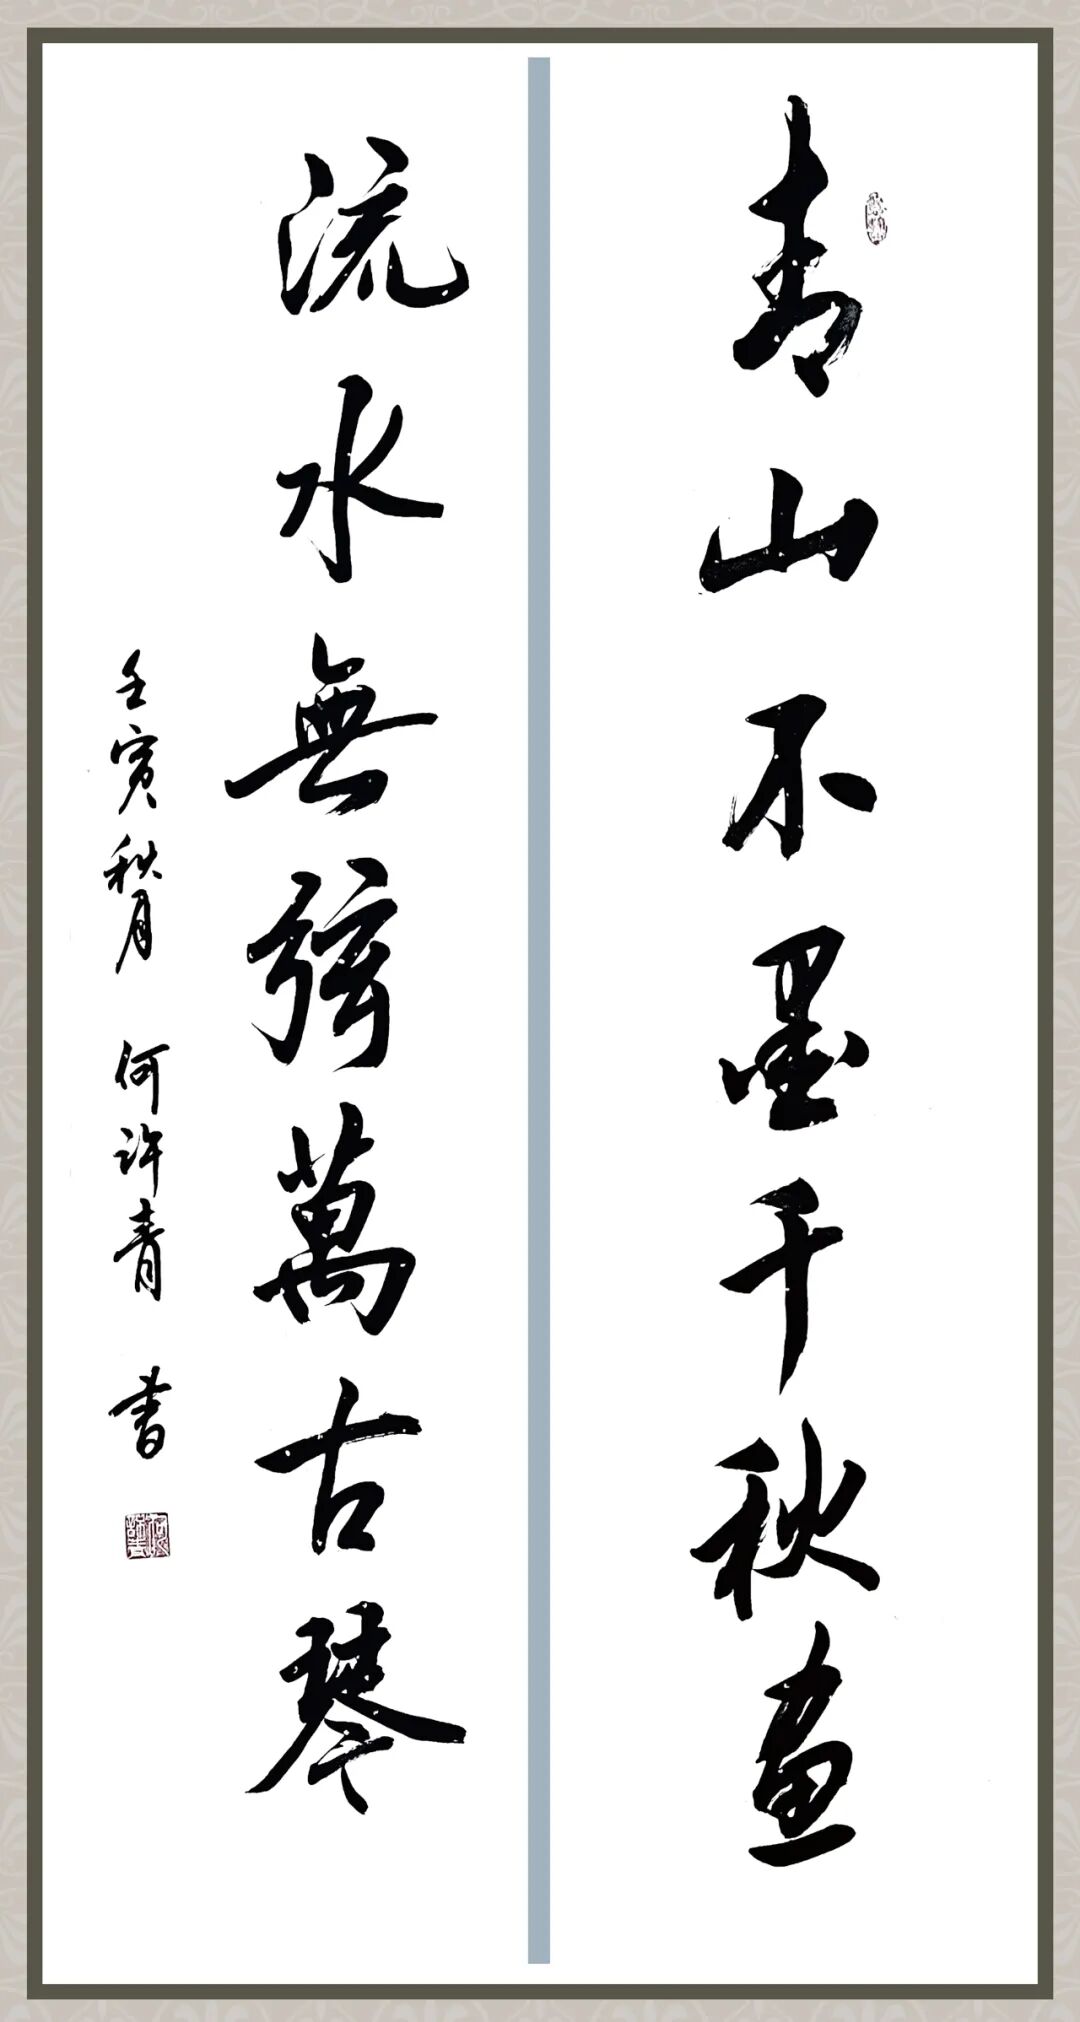 青山不墨千秋画
流水無弦萬古琴
壬寅秋月 何许青 书